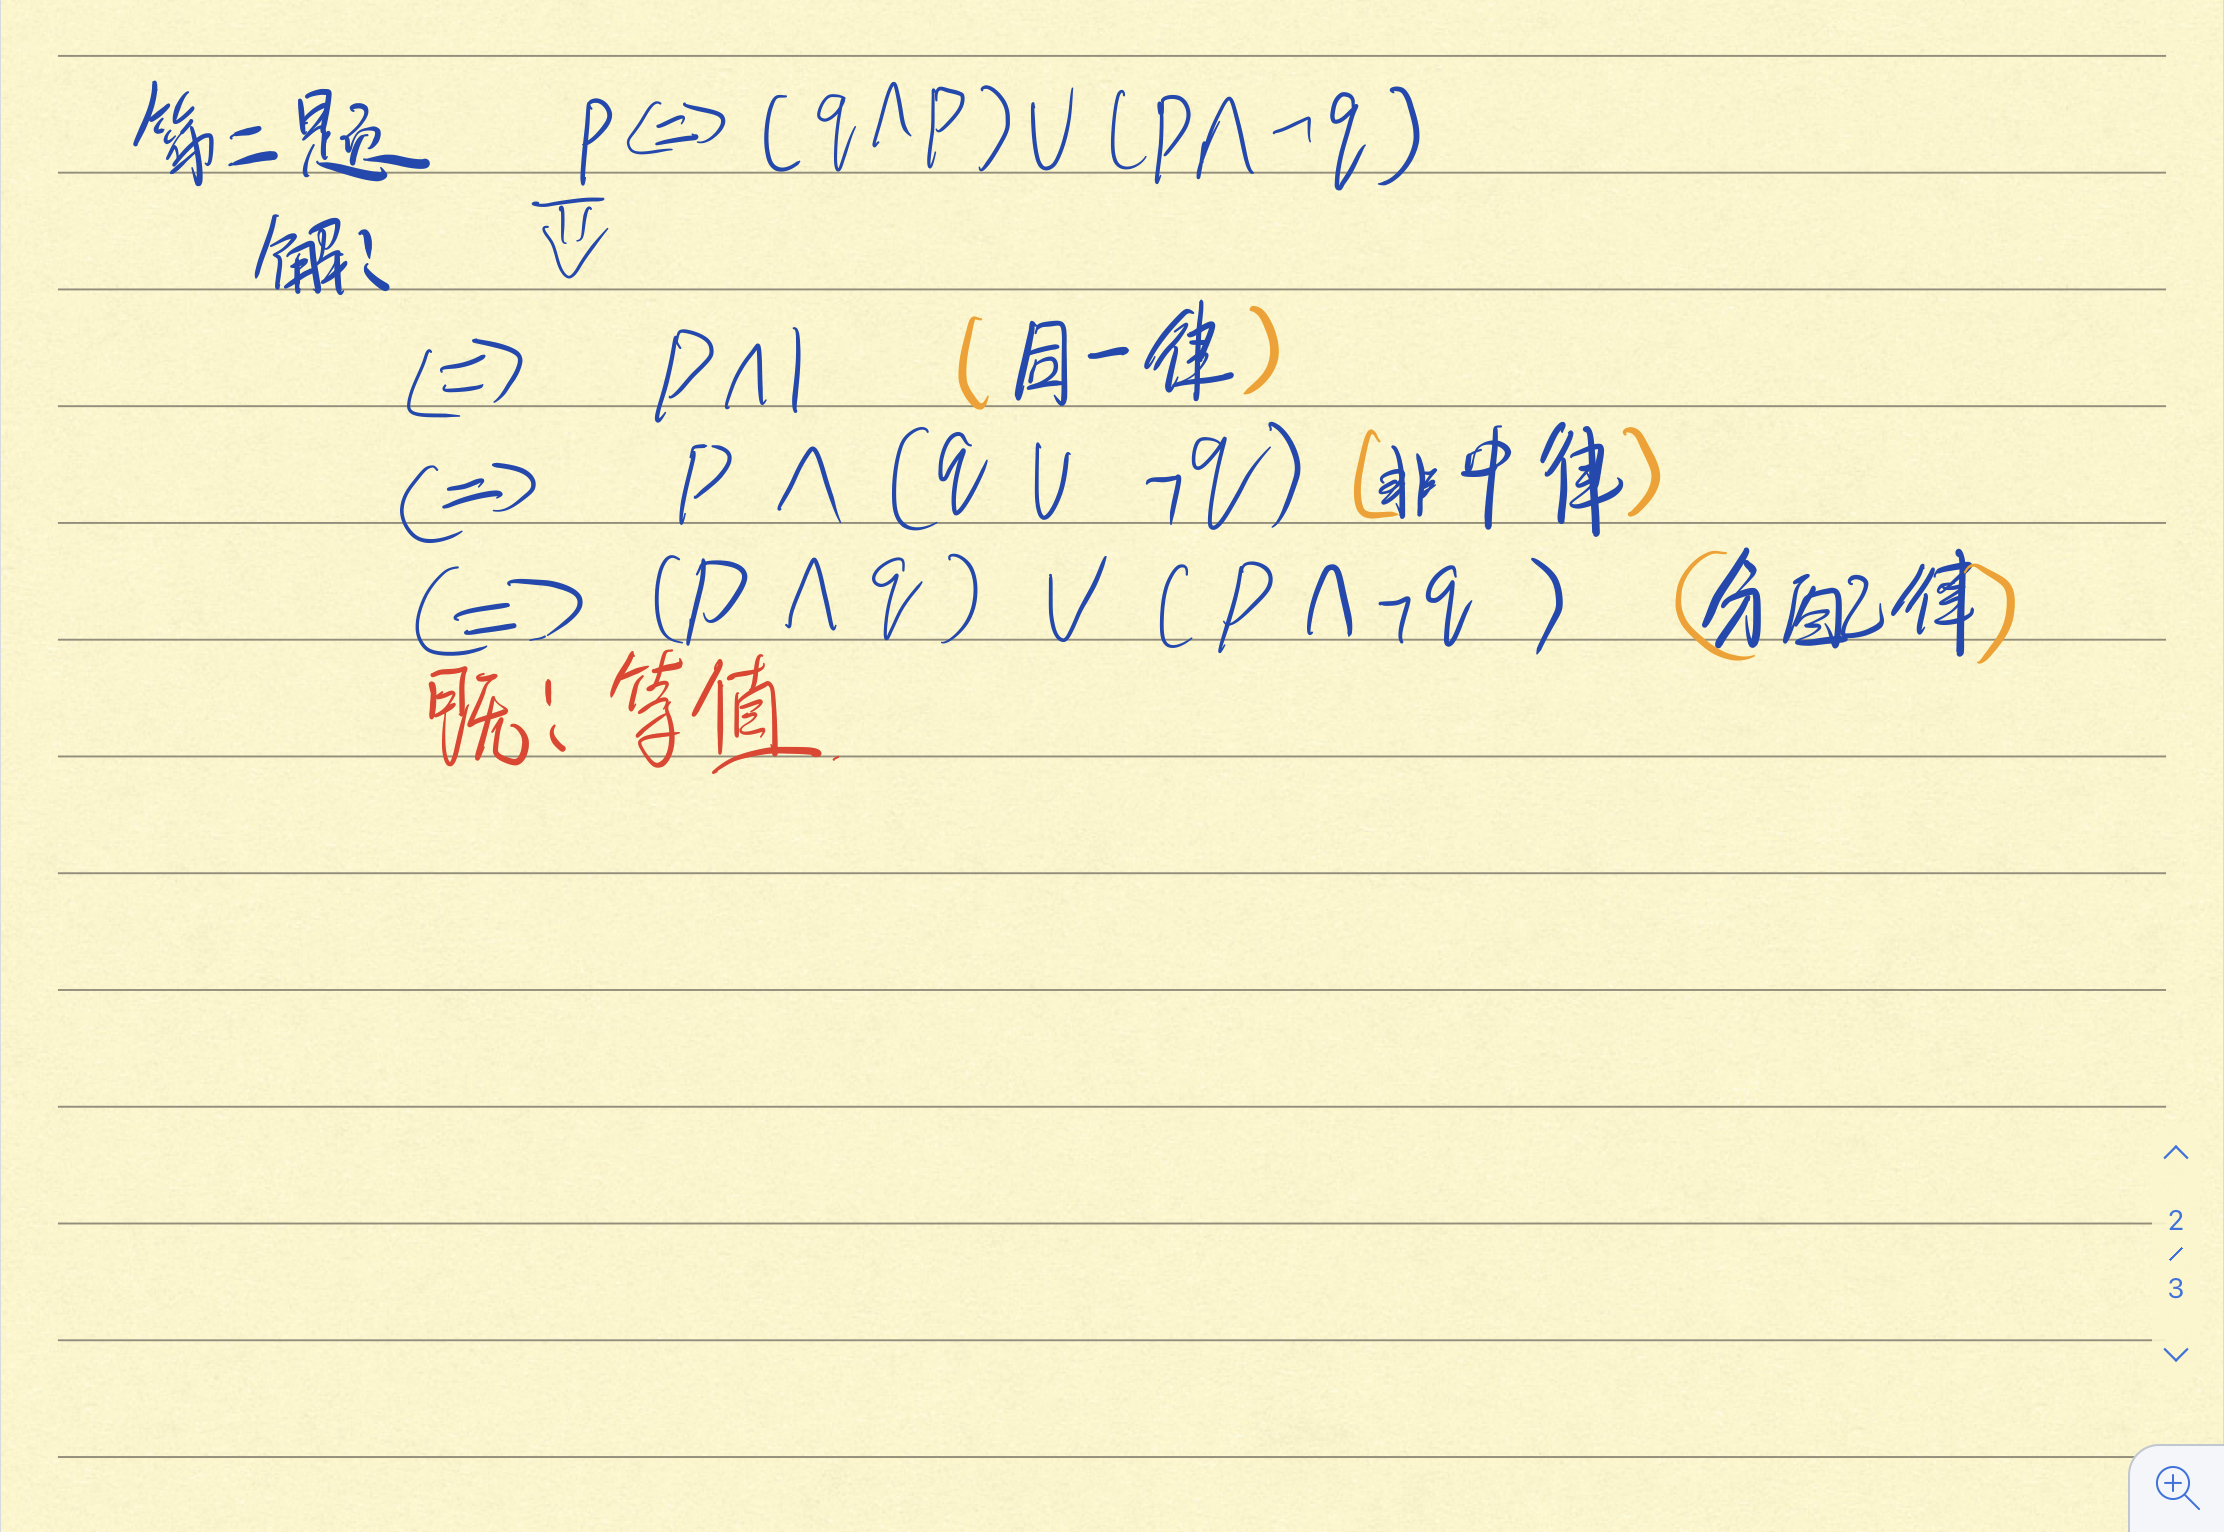 第二题 P⇔(q∧P)∨(P∧¬q)
解： ⇓
⇔ P∧1 (同一律)
⇔ P∧(q∨¬q) (排中律)
⇔ (P∧q)∨(P∧¬q) (分配律)
既：等值
2
/
3